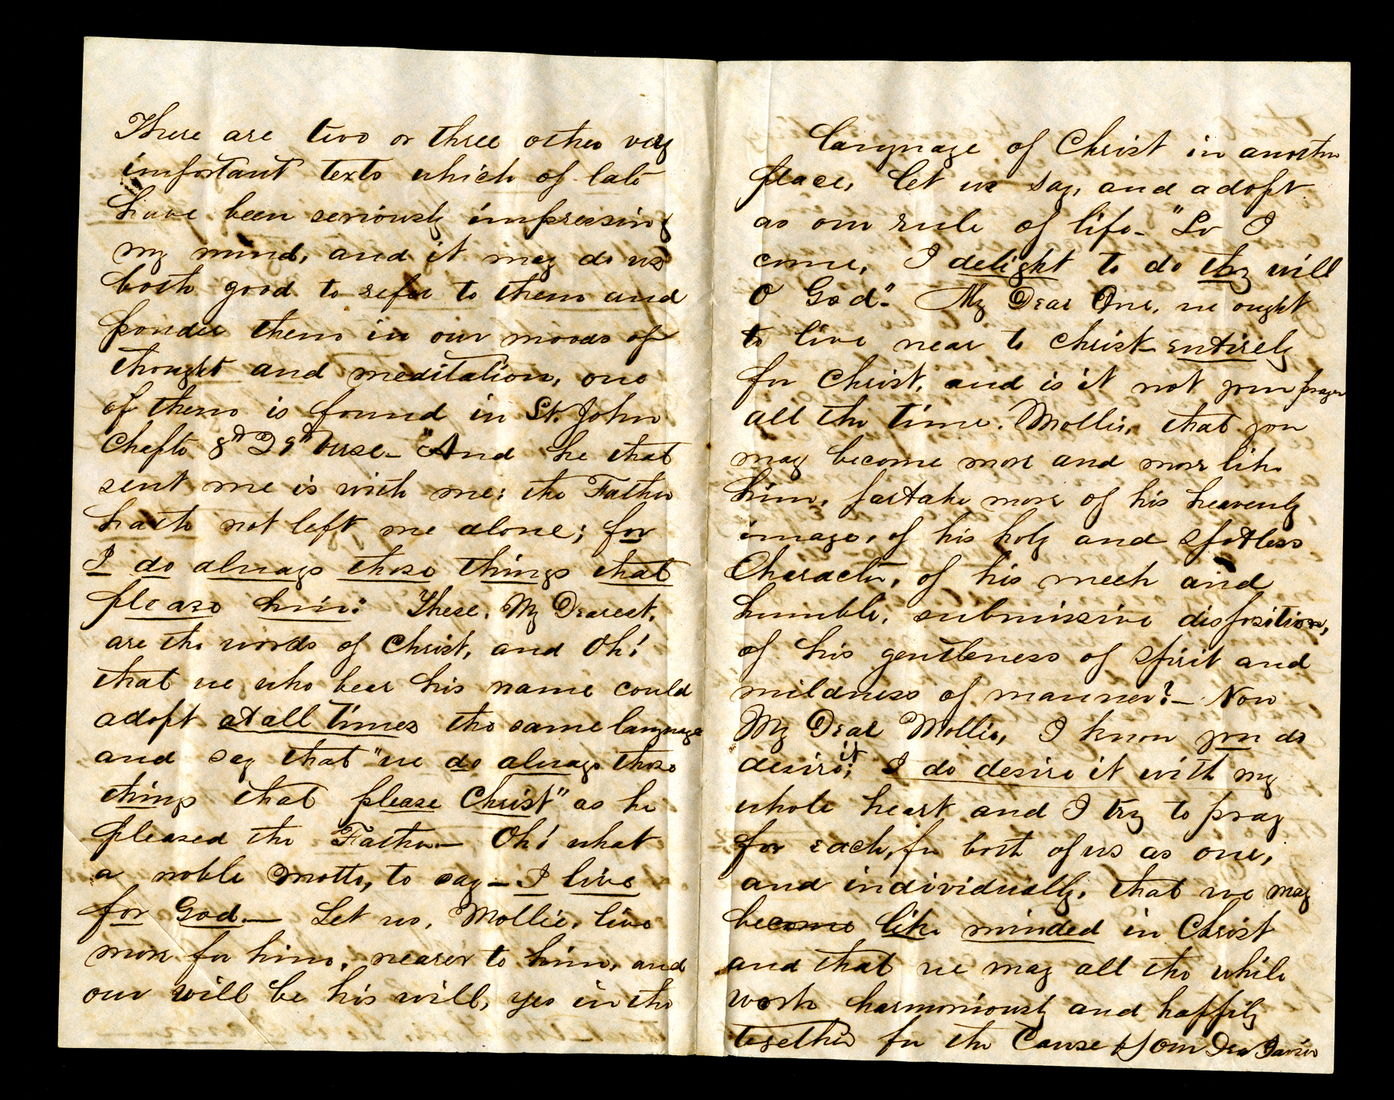 There are two or three other very
important texts which of late
have been seriously impressing
my mind, and it may do us
both good to refer to them and
ponder them in our moods of
thought and meditation, one
of them is found in St. John
Chapt 8th 29th Verse - "And he that
sent me is with me: the Father
hath not left me alone; for
I do always those things that
please him." These, My Dearest,
are the words of Christ, and Oh!
that we who bear his name could
adopt at all times the same language
and say that "we do always those
things that please Christ" as he
pleased the Father - Oh! what
a noble motto, to say - I live
for God - Let us, Mollie, live
more for him, nearer to him, and
our will be his will, yes in the
language of Christ in another
place, let us say, and adopt
as our rule of life - "Lo I
come, I delight to do thy will
O God". My Dear One, we ought
to live near to Christ - entirely
for Christ, and is it not your prayer
all the time, Mollie, that you
may become more and more like
him, partake more of his heavenly
image, of his holy and spotless
Character, of his meek and
humble, submissive disposition,
of his gentleness of spirit and
mildness of manner? - Now
My Dear Mollie, I know you do
desire it; I do desire it with my
whole heart and I try to pray
for each, for both of us as one,
and individually, that we may
become like minded in Christ
and that we may all the while
work harmoniously and happily
together for the Cause of Our Dear Savior